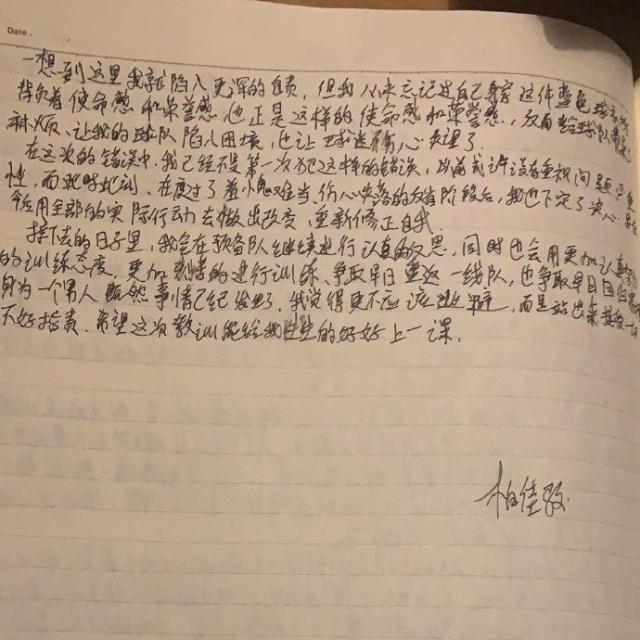 Date.
一想到这里我就陷入更深的自责,但我从未忘记过自己身穿这件蓝色球衣
背负着使命感和荣誉感,也正是这样的使命感和荣誉感,反而给球队带来
麻烦、让我的球队陷入困境,也让球迷伤心失望了
在这次的错误中,我已经不是第一次犯这样的错误,以前或许没在重视问题严重
性,而此时此刻,在度过了羞愧难当,伤心失落的反省阶段后,我也下定了决心
能用全部的实际行动去做出改变,重新修正自我.
接下去的日子里,我会在预备队继续进行认真的反思,同时也会用更加认真
的训练态度,更加刻苦的进行训练、争取早日重返一线队,也争取早日回归
身为一个男人既然事情已经发生了,我觉得更不应该逃避,而是站出来接受
不好指责、希望这次教训能给我生生的好好上一课.
柏佳骏